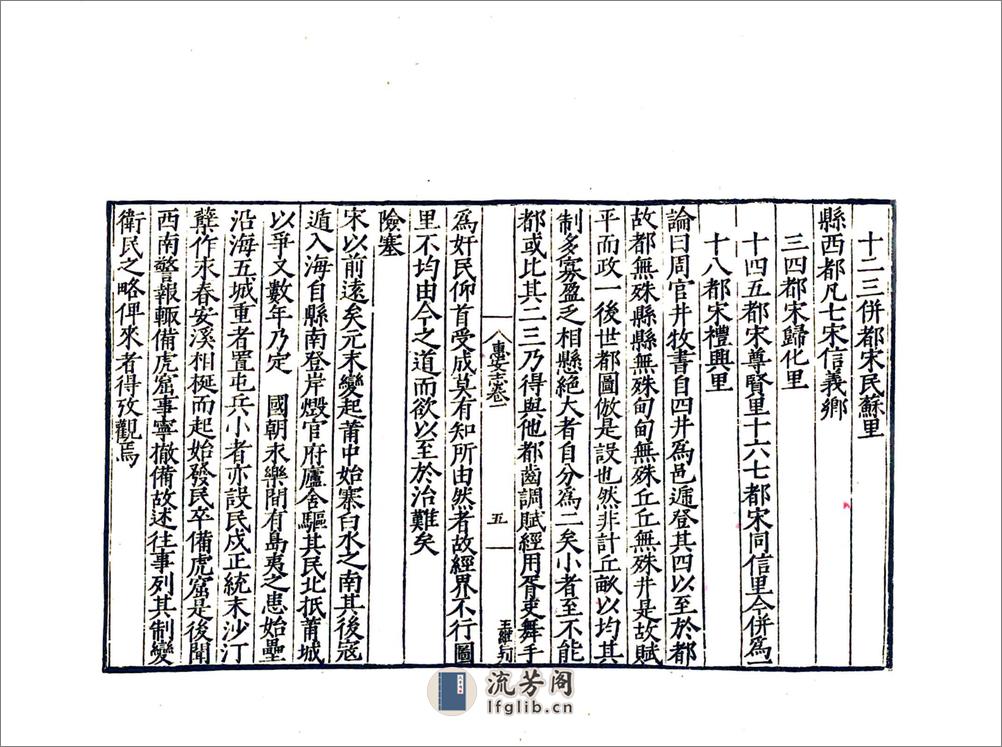 十二三併都宋民蘇里
縣西都凡七宋信義鄉
三四都宋歸化里
十四五都宋尊賢里十六七都宋同信里今併爲一
十八都宋禮興里
論曰周官井牧書自四井爲邑遞登其四以至於都
故都無殊縣縣無殊甸甸無殊丘丘無殊井是故賦
平而政一後世都圖倣是設也然非計丘畝以均其
制多寡盈乏相縣絕大者自分爲二矣小者至不能
都或比其二三乃得與他都齒調賦經用胥吏舞手
惠安志卷一
五
王繼明
爲奸民仰首受成莫有知所由然者故經界不行圖
里不均由今之道而欲以至於治難矣
險塞
宋以前遠矣元末變起莆中始寨白水之南其後寇
遁入海自縣南登岸燬官府廬舍驅其民北抵莆城
以爭又數年乃定 國朝永樂間有島夷之患始壘
沿海五城重者置屯兵小者亦設民戍正統末沙汀
孽作永春安溪相梃而起始發民卒備虎窟是後聞
西南警報輒備虎窟事寧撤備故述往事列其制變
衛民之略俾來者得攷觀焉
流芳阁
lfglib.cn